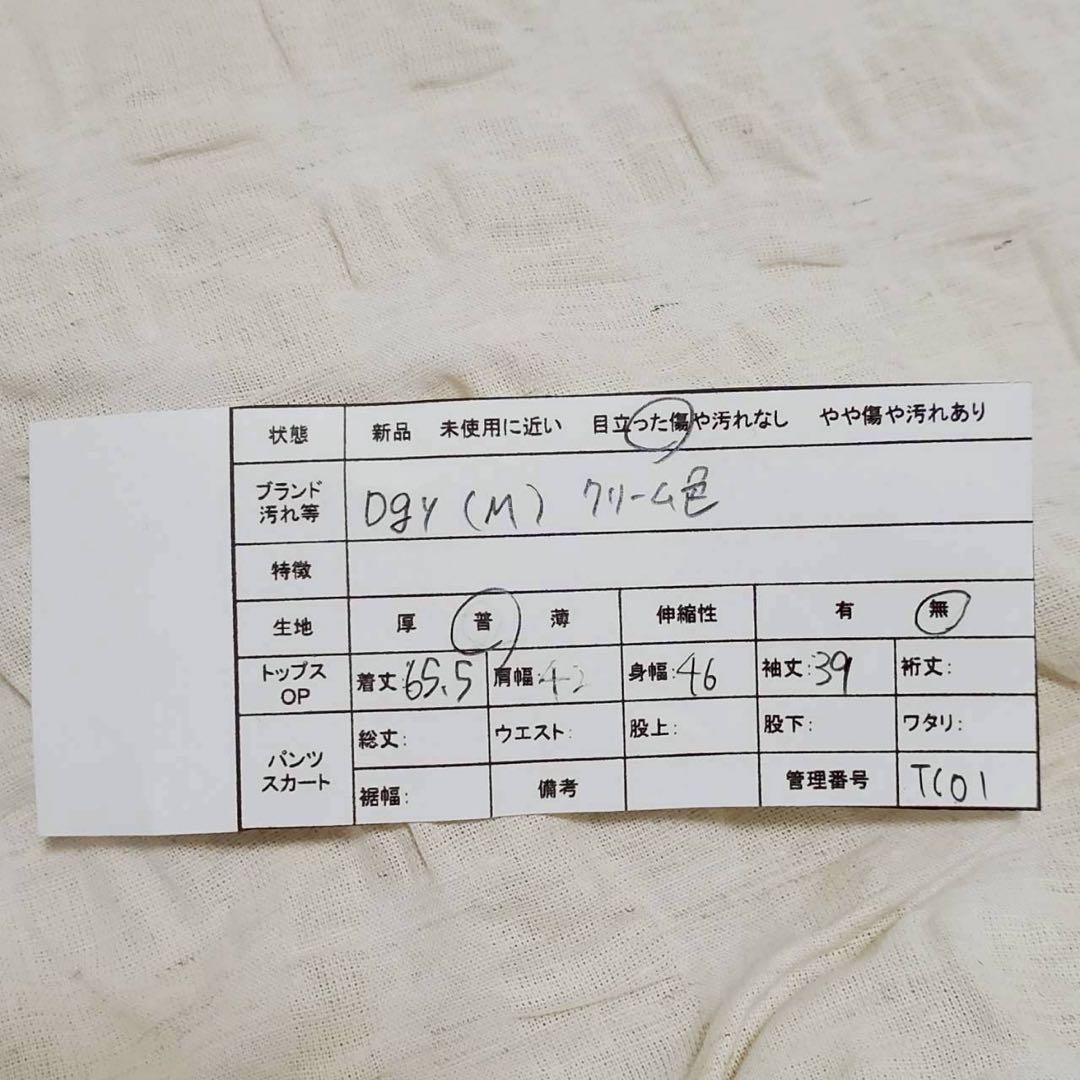 状態 新品 未使用に近い 目立った傷や汚れなし やや傷や汚れあり
ブランド
汚れ等
Dgy (M) クリーム色
特徴
生地 厚 普 薄 伸縮性 有 無
トップス
OP
着丈:65.5 肩幅:42 身幅:46 袖丈:39 裄丈:
パンツ
スカート
総丈: ウエスト: 股上: 股下: ワタリ:
裾幅: 備考 管理番号 TC01